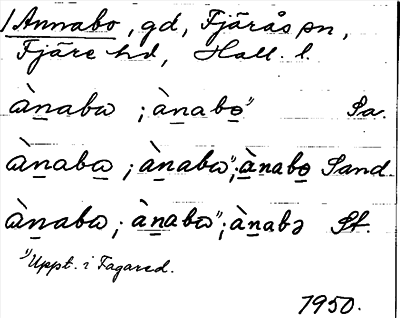 /Annabo, gd, Fjärås sn,
Fjäre hd, Hall. l.
ànabω ; ànabo¹⁾ Sa.
ànabω ; ànabω¹⁾; ànabo Sand.
ànabω ; ànabω¹⁾; ànabə St.
¹⁾Uppt. i Fagared.
1950.